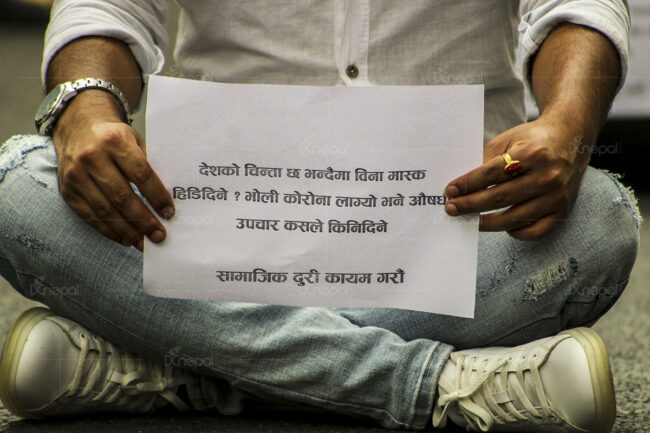 देशको चिन्ता छ भन्दैमा विना मास्क
हिडिदिने ? भोली कोरोना लाग्यो भने औषधी
उपचार कसले किनिदिने
सामाजिक दुरी कायम गरौं